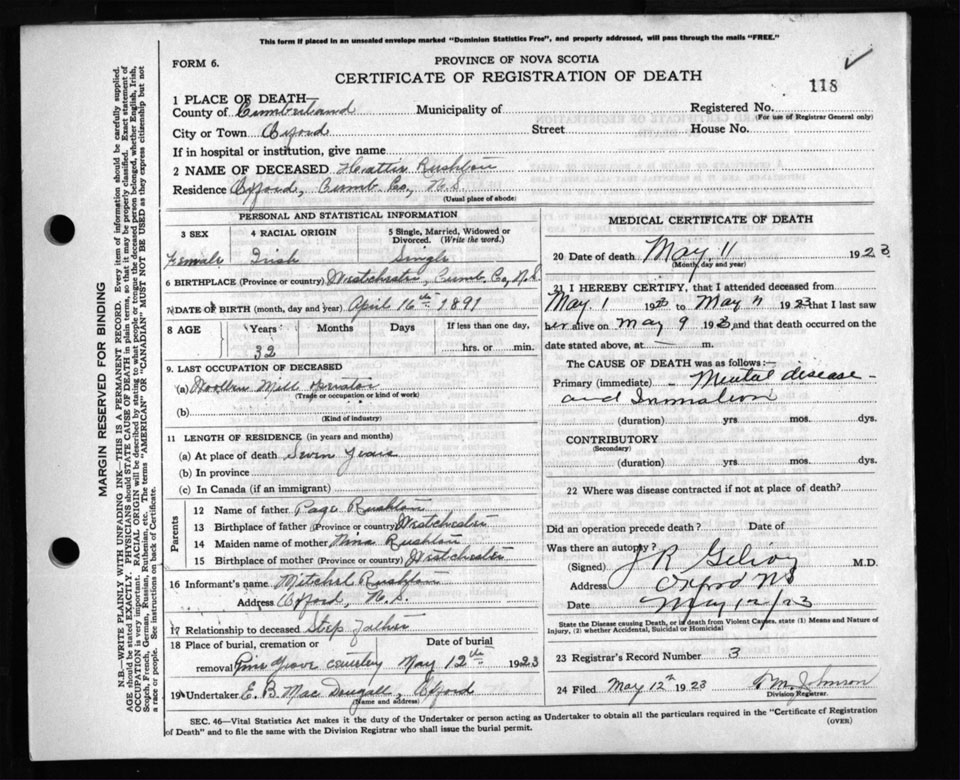 This form if placed in an unsealed envelope marked "Dominion Statistics Free", and properly addressed, will pass through the mails "FREE."
FORM 6.
PROVINCE OF NOVA SCOTIA
CERTIFICATE OF REGISTRATION OF DEATH
118
1 PLACE OF DEATH—
County of Cumberland Municipality of Registered No.
(For use of Registrar General only)
City or Town Oxford Street House No.
If in hospital or institution, give name
2 NAME OF DECEASED Hattie Rushton
Residence Oxford, Cumb Co, N.S.
(Usual place of abode)
PERSONAL AND STATISTICAL INFORMATION
3 SEX 4 RACIAL ORIGIN 5 Single, Married, Widowed or Divorced. (Write the word.)
Female Irish Single
6 BIRTHPLACE (Province or country) Westchester, Cumb. Co, N.S
7 DATE OF BIRTH (month, day and year) April 16th 1891
8 AGE Years Months Days If less than one day,
32 hrs. or min.
9. LAST OCCUPATION OF DECEASED
(a) Woollen Mill Operator
(Trade or occupation or kind of work)
(b)
(Kind of industry)
11 LENGTH OF RESIDENCE (in years and months)
(a) At place of death Seven Years
(b) In province
(c) In Canada (if an immigrant)
Parents
12 Name of father Page Rushton
13 Birthplace of father (Province or country) Westchester
14 Maiden name of mother Nina Rushton
15 Birthplace of mother (Province or country) Westchester
16 Informant's name Mitchel Rushton
Address Oxford, N.S.
17 Relationship to deceased Step Father
18 Place of burial, cremation or Date of burial
removal Pine Grove cemetery May 12th 1923
19 Undertaker E. B. MacDougall, Oxford
(Name and address)
MEDICAL CERTIFICATE OF DEATH
20 Date of death May 11 1923
(Month, day and year)
21 I HEREBY CERTIFY, that I attended deceased from
May. 1 1923 to May 11 1923 that I last saw
her alive on May 9 1923, and that death occurred on the
date stated above, at — m.
The CAUSE OF DEATH was as follows:—
Primary (immediate) - Mental disease -
and
(duration) yrs. mos. dys.
CONTRIBUTORY
(Secondary)
(duration) yrs. mos. dys.
22 Where was disease contracted if not at place of death?
Did an operation precede death? Date of
Was there an autopsy?
(Signed) J R Gilroy M.D.
Address Oxford NS
Date May 12/23
State the Disease causing Death, or in death from Violent Causes, state (1) Means and Nature of
Injury, (2) whether Accidental, Suicidal or Homicidal
23 Registrar's Record Number 3
24 Filed May 12th 1923
Division Registrar.
SEC. 46—Vital Statistics Act makes it the duty of the Undertaker or person acting as Undertaker to obtain all the particulars required in the "Certificate of Registration
of Death" and to file the same with the Division Registrar who shall issue the burial permit.
(OVER)
MARGIN RESERVED FOR BINDING
N.B.—WRITE PLAINLY WITH UNFADING INK—THIS IS A PERMANENT RECORD. Every item of information should be carefully supplied.
AGE should be stated EXACTLY. PHYSICIANS should STATE CAUSE OF DEATH in plain terms, so that it may be properly classified. Exact statement of
OCCUPATION is very important. RACIAL ORIGIN will be described by stating to what people or tongue the deceased person belonged, whether English, Irish,
Scotch, French, German, Russian, Ruthenian, etc. The terms "AMERICAN" OR "CANADIAN" MUST NOT BE USED as they express citizenship but not
a race or people. See instructions on back of Certificate.